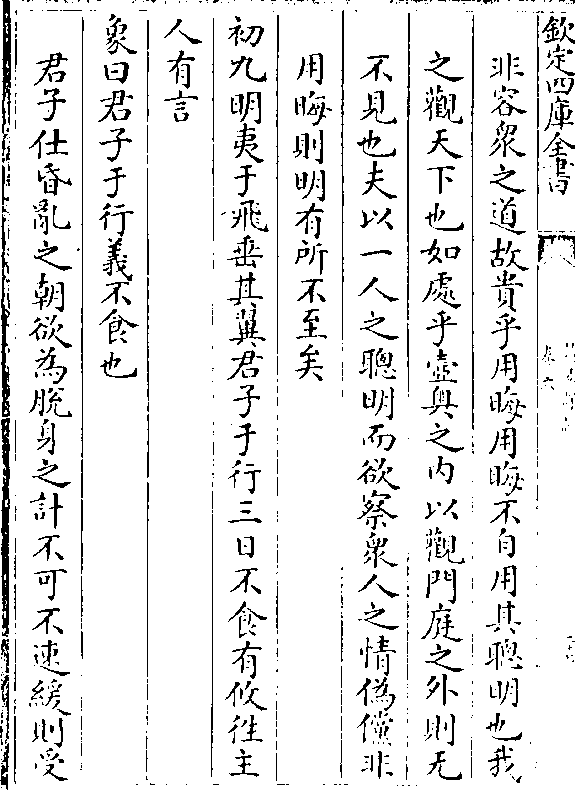 欽定四庫全書
非容衆之道故貴乎用晦用晦不自用其聰明也我
之觀天下也如處乎壺奥之内以觀門庭之外則无
不見也夫以一人之聰明而欲察衆人之情偽儻非
用晦則明有所不至矣
初九明夷于飛垂其翼君子于行三日不食有攸往主
人有言
象曰君子于行義不食也
君子仕昏亂之朝欲為脫身之計不可不速緩則受